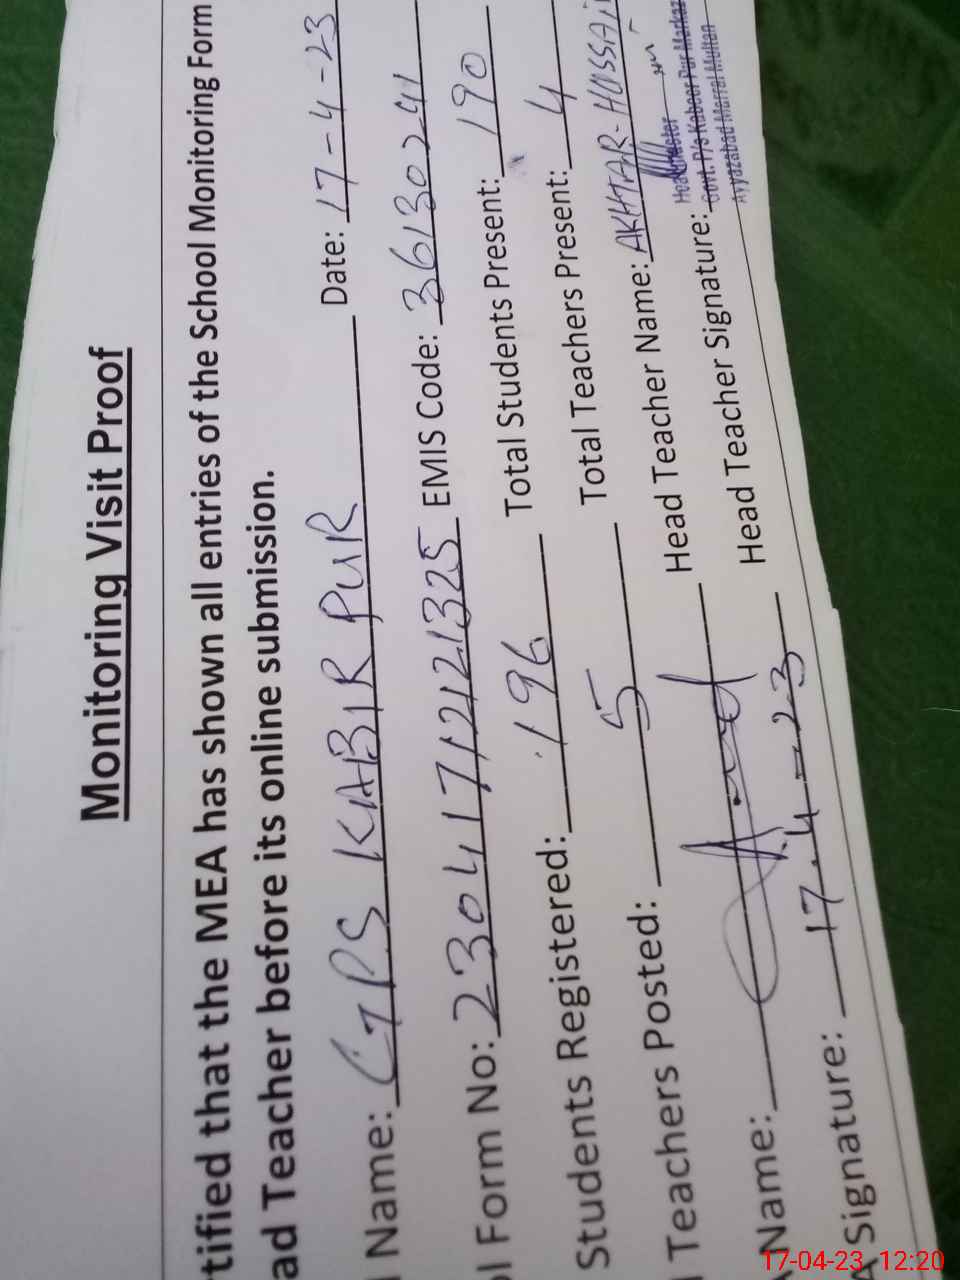 Monitoring Visit Proof
tified that the MEA has shown all entries of the School Monitoring Form
ad Teacher before its online submission.
l Name: GPS KABIR PUR Date: 17-4-23
ol Form No: 23041712121325 EMIS Code: 36130241
Students Registered: 196 Total Students Present: 190
Teachers Posted: 5 Total Teachers Present: 4
Name: Head Teacher Name: AKHTAR-HOSSAI
A Signature: 17-4-23 Head Teacher Signature:
Govt. P/s Kabeer Pur Markaz
Ayyazabad Marral Multan
17-04-23 12:20